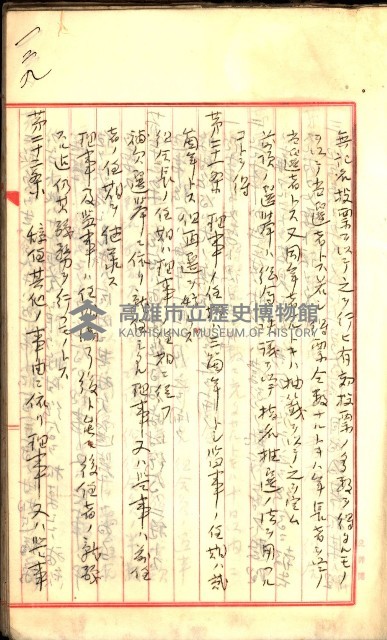 一二九
無記名投票ヲ以テ之ヲ行ヒ有効投票ノ多数ヲ得タルモノ
ヲ以テ当選者トス若シ得票全数ナルトキハ年長者ヲ以テ
当選者トス又同年ノ トキハ抽籤ヲ以テ之ヲ定ム
前項ノ選挙ハ総会ノ決議ニ ヨリ指名推選ノ法ヲ用フル
コトヲ得
第二十一条 理事ノ任期ハ三箇年トシ監事ノ任期ハ弐
箇年トス但再選ヲ妨ケス
組合長ノ任期ハ理事ノ任期ニ従フ
補欠選挙ニ依リ就 タル理事又ハ監事ハ前任
者ノ任期ヲ継承ス
理事及監事ハ任期満了後ト雖モ後任者ノ就職
スル迄仍其職務ヲ行フモノトス
第二十二条 辞任其他ノ事由ニ依リ理事又ハ監事
高雄市立歷史博物館
KAOHSIUNG MUSEUM OF HISTORY